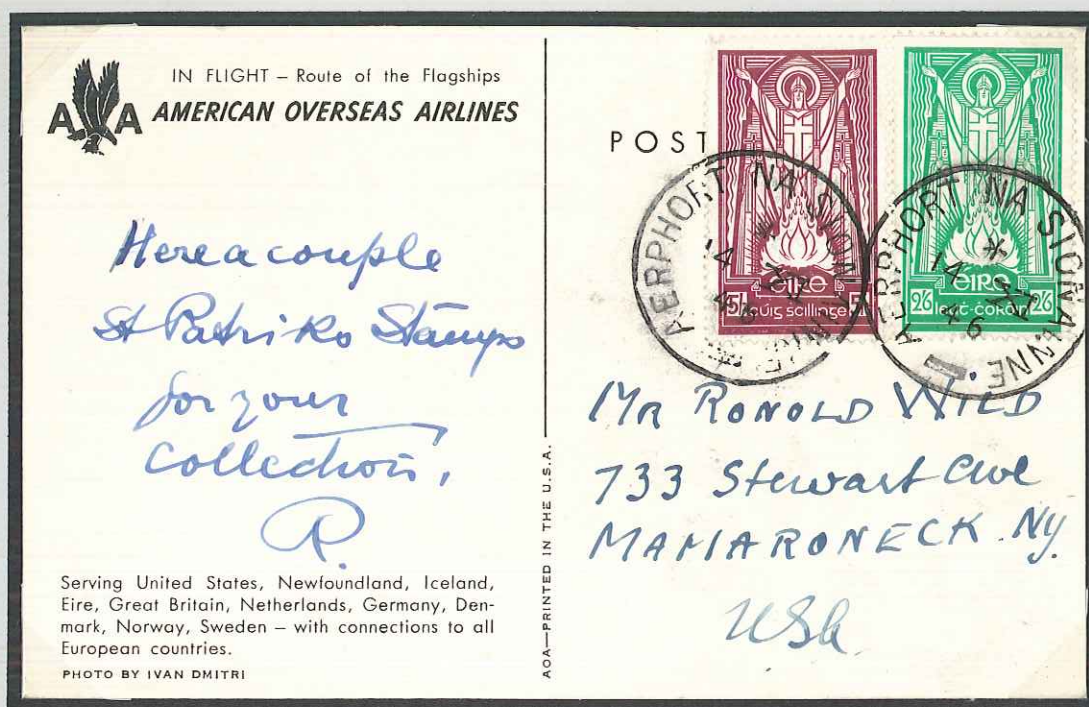 IN FLIGHT – Route of the Flagships
A A AMERICAN OVERSEAS AIRLINES
Here a couple
St Patriks Stamps
for your
Collection,
R.
Serving United States, Newfoundland, Iceland,
Eire, Great Britain, Netherlands, Germany, Den-
mark, Norway, Sweden – with connections to all
European countries.
PHOTO BY IVAN DMITRI
AOA—PRINTED IN THE U.S.A.
POST
éire
5/- cúig scillinge 5/-
éire
2/6 leat-coróin 2/6
AERPHORT NA SIONAINNE
14
46
AERPHORT NA SIONAINNE
14
46
Mr RONOLD WILD
733 Stewart Ave
MAMARONECK. Ny.
USA.